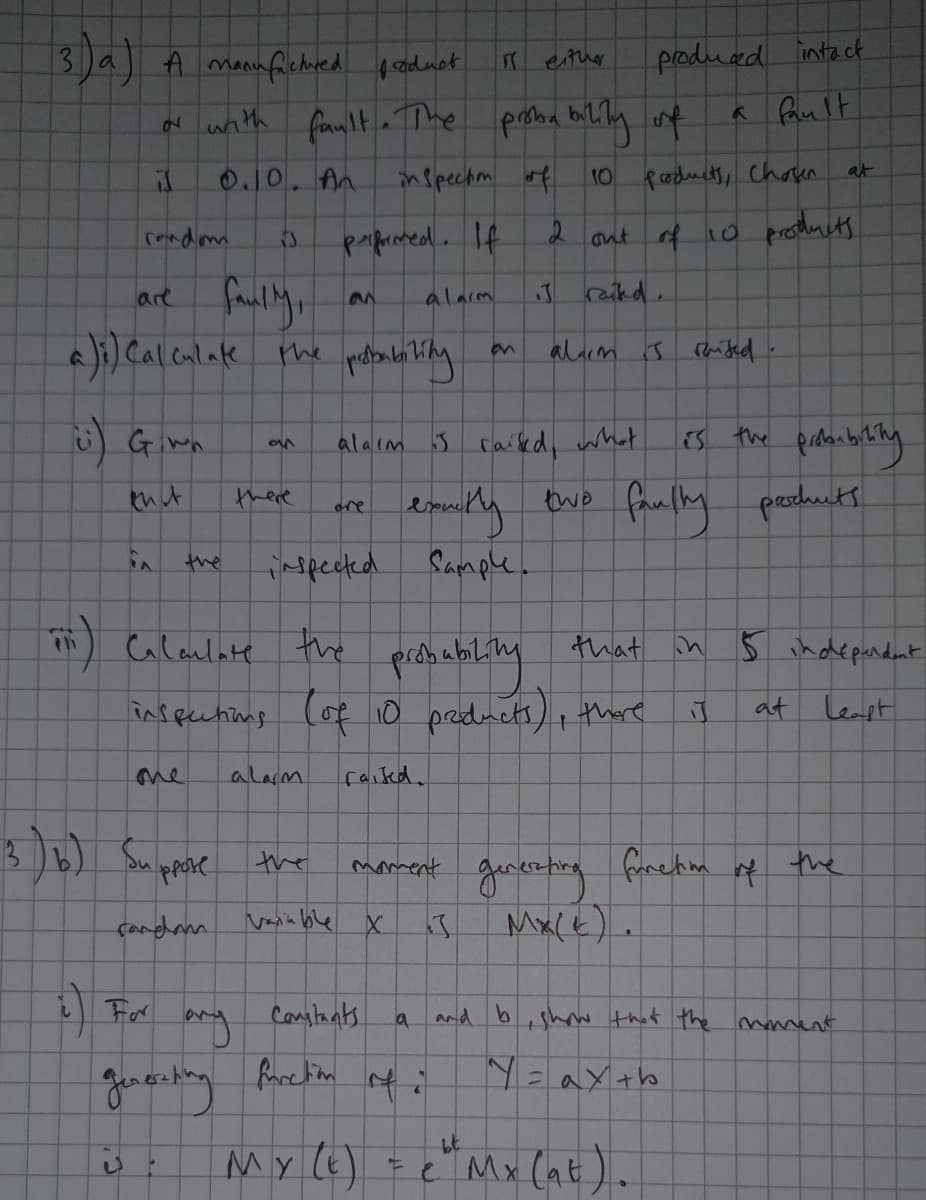 3) a) A manufactured product is either produced intact
or with fault. The probability of a fault
is 0.10. An inspection of 10 products, chosen at
random is performed. If 2 out of 10 products
are faulty, an alarm is raised.
a) i) Calculate the probability an alarm is raised.
ii) Given an alarm is raised, what is the probability
that there are exactly two faulty products
in the inspected sample.
iii) Calculate the probability that in 5 independent
inspections (of 10 products), there is at least
one alarm raised.
3) b) Suppose the moment generating function of the
random variable X is Mx(t).
i) For any constants a and b, show that the moment
generating function of : Y = aX + b
is : MY (t) = e^bt Mx (at).